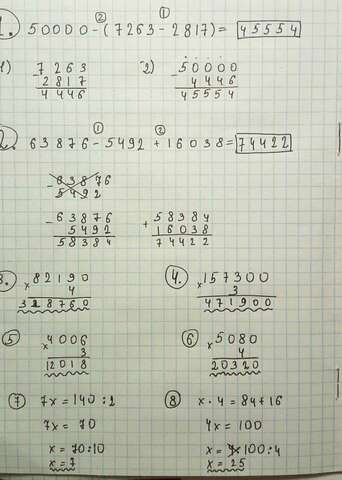 1. 50000-(7263-2817)=45554
② ①
1) 7263 2) 50000
- 2817 - 4446
4446 45554
2. 63876-5492+16038=74422
① ②
- 63876
5492
- 63876 + 58384
5492 16038
58384 74422
3. × 82190 4. × 157300
4 3
328760 471900
5 × 4006 6 × 5080
3 4
12018 20320
7 7x=140:2 8 x·4=84+16
7x=70 4x=100
x=70:10 x=100:4
x=7 x=25